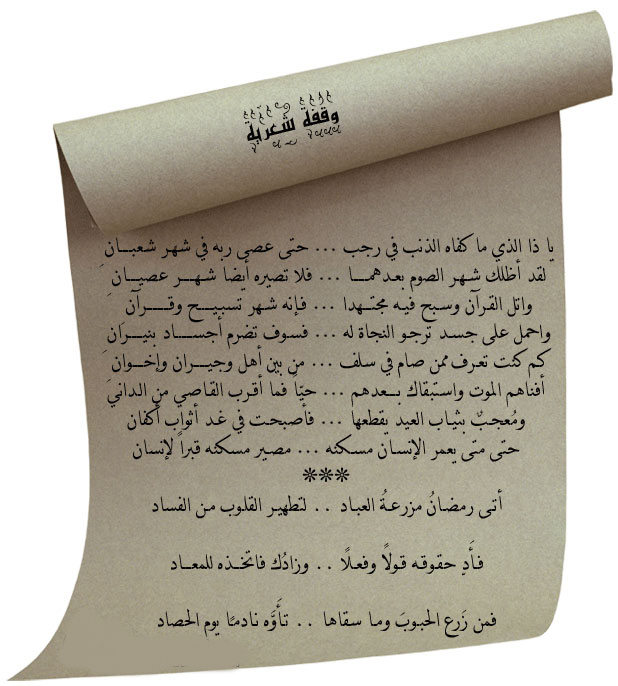 وقفة شعرية
يا ذا الذي ما كفاه الذنب في رجب ... حتى عصى ربه في شهر شعبـــان
لقد أظلك شهر الصوم بعدهمـــا ... فلا تصيره أيضا شهـــر عصيـــان
واتل القرآن وسبح فيه مجتهدا ... فإنه شهر تسبيـــح وقـــرآن
واحمل على جسد ترجو النجاة له ... فسوف تضرم أجســـاد بنيران
كم كنت تعرف ممن صام في سلف ... من بين أهل وجيـــران وإخـــوان
أفناهم الموت واستبقاك بـــعدهم ... حيّا فما أقرب القاصي من الداني
ومُعجبٌ بثياب العيد يقطعها ... فأصبحت في غد أثواب أكفان
حتى متى يعمر الإنسان مسكنه ... مصير مسكنه قبراً لإنسان
***
أتى رمضانُ مزرعةُ العباد .. لتطهير القلوب من الفساد
فأَدِ حقوقه قولًا وفعلًا .. وزادُك فاتخذه للمعاد
فمن زَرع الحبوبَ وما سقاها .. تأوَّه نادمًا يوم الحصاد